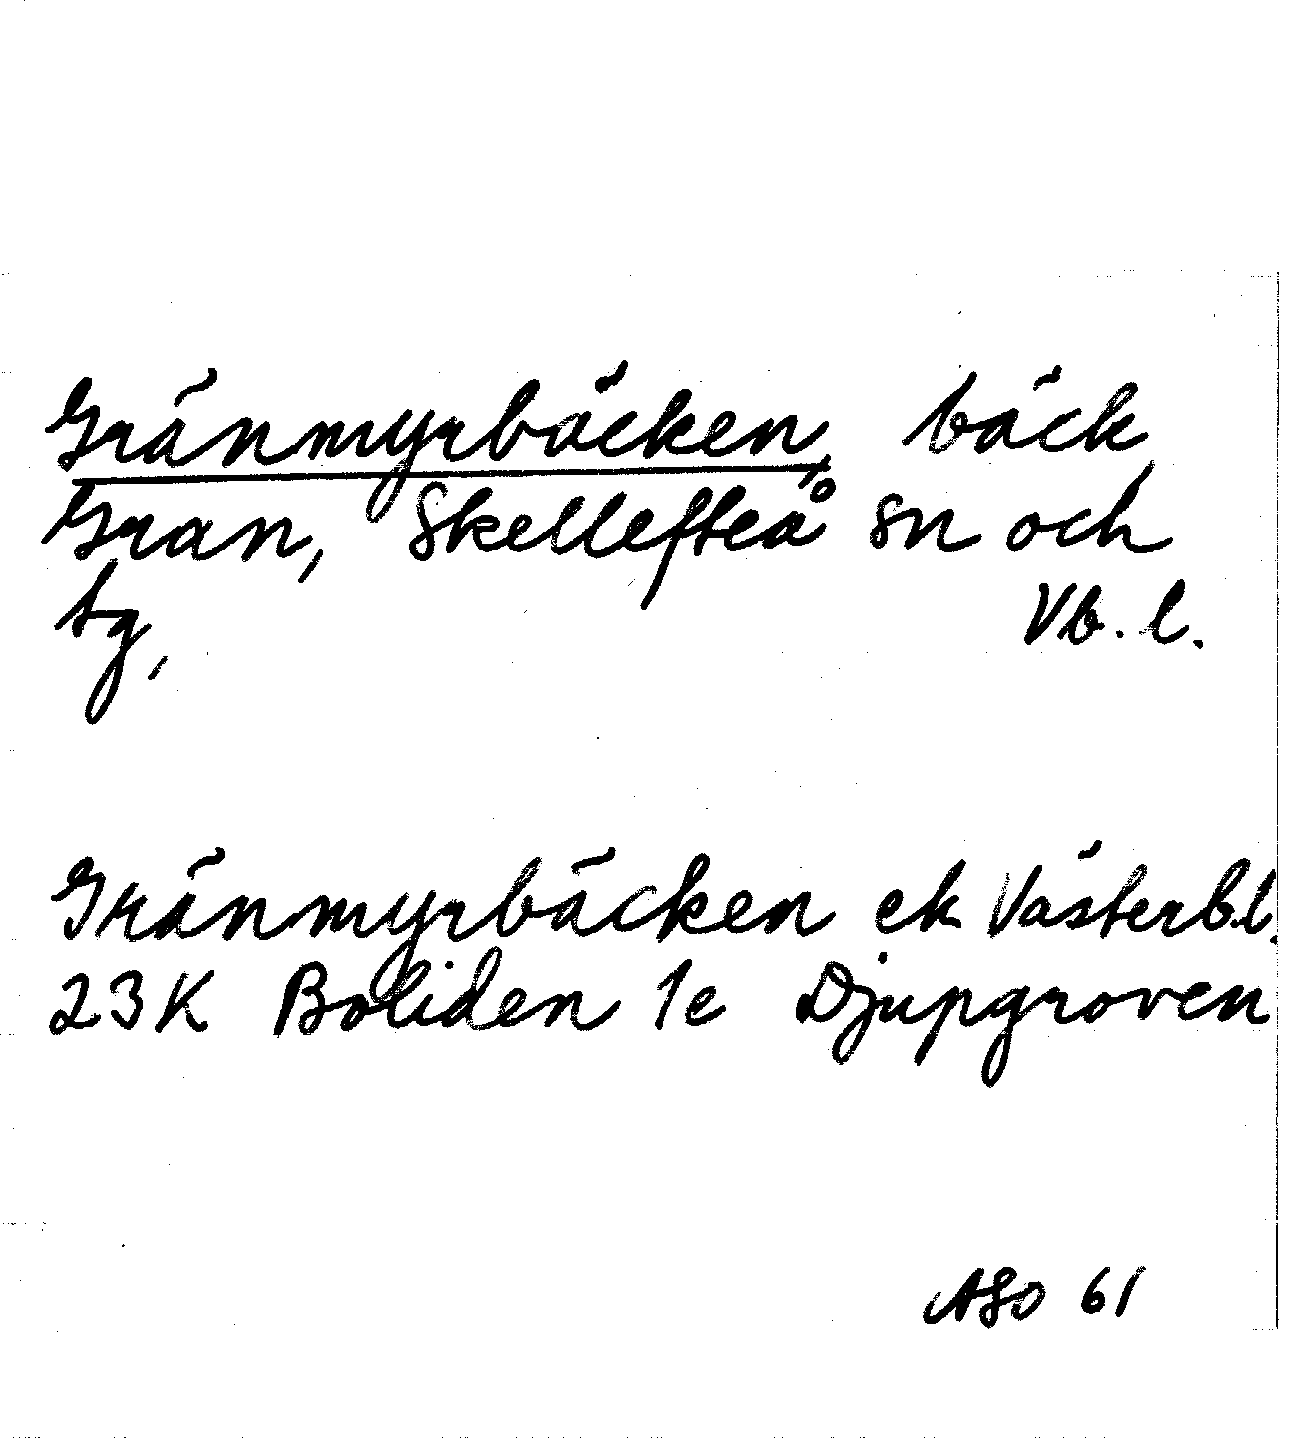 Gränmyrbäcken, bäck
Gran, Skellefteå sn och
tg, Vb. l.
Gränmyrbäcken ek Västerb.l.
23K Boliden 1e Djupgroven
ASO 61